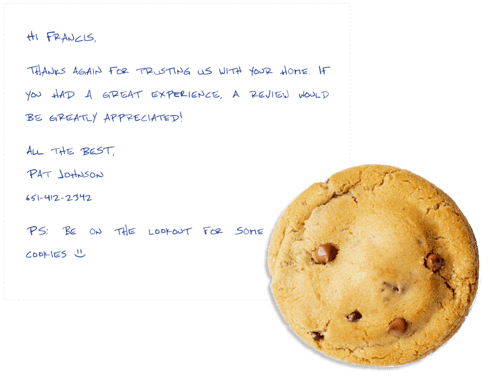 HI FRANCIS,
THANKS AGAIN FOR TRUSTING US WITH YOUR HOME. IF
YOU HAD A GREAT EXPERIENCE, A REVIEW WOULD
BE GREATLY APPRECIATED!
ALL THE BEST,
PAT JOHNSON
651-412-2342
PS: BE ON THE LOOKOUT FOR SOME
COOKIES :)